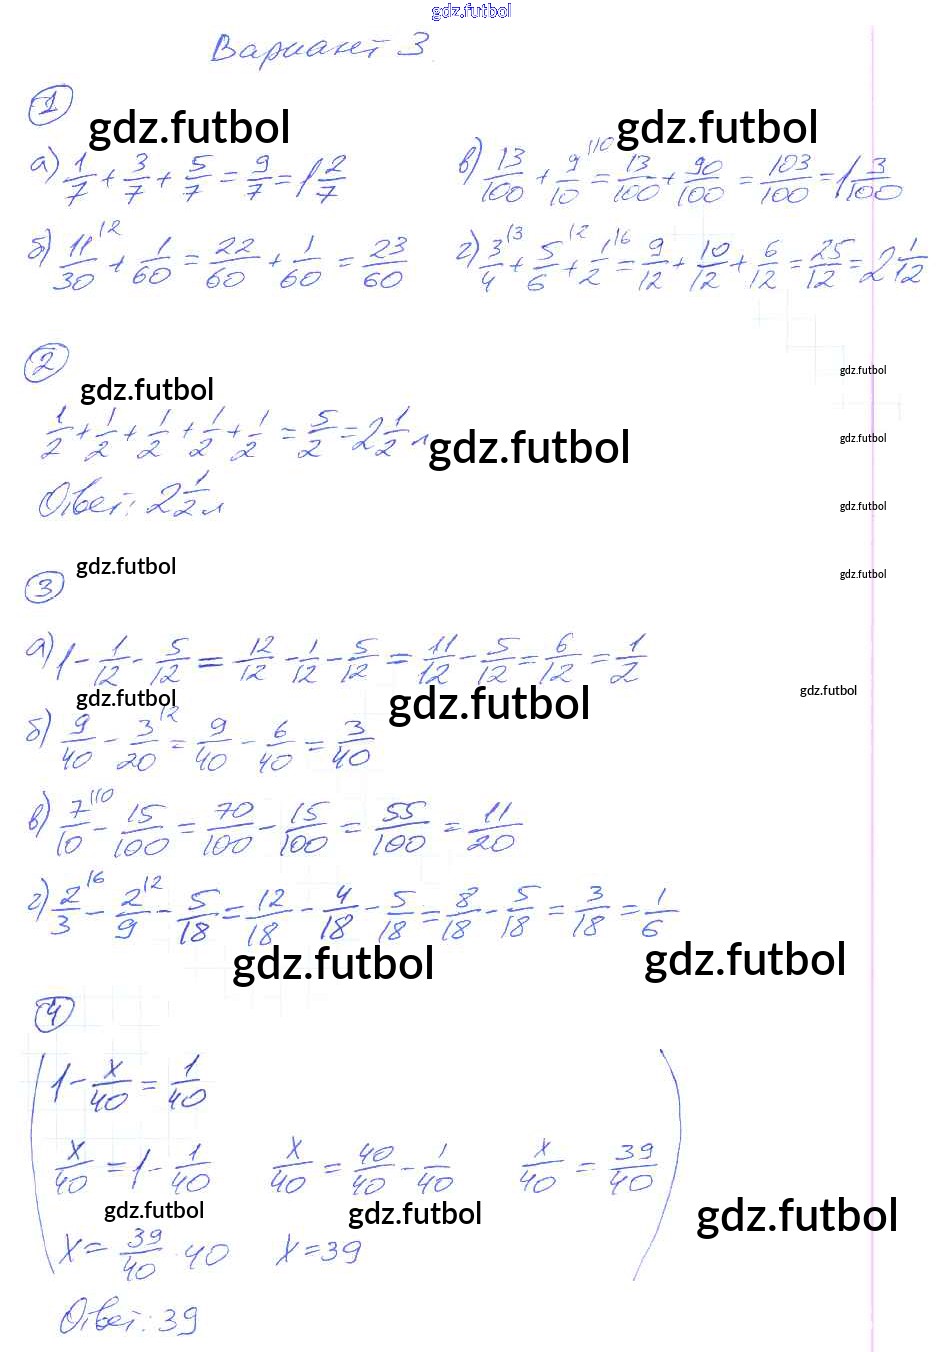 gdz.futbol
Вариант 3
1
gdz.futbol gdz.futbol
а) 1/7 + 3/7 + 5/7 = 9/7 = 1 2/7
в) 13/100 + 9/10 |10 = 13/100 + 90/100 = 103/100 = 1 3/100
б) 11/30 |2 + 1/60 = 22/60 + 1/60 = 23/60
г) 3/4 |3 + 5/6 |2 + 1/2 |6 = 9/12 + 10/12 + 6/12 = 25/12 = 2 1/12
2
gdz.futbol
gdz.futbol
1/2 + 1/2 + 1/2 + 1/2 + 1/2 = 5/2 = 2 1/2 л
gdz.futbol
gdz.futbol
Ответ: 2 1/2 л
gdz.futbol
gdz.futbol
gdz.futbol
3
а) 1 - 1/12 - 5/12 = 12/12 - 1/12 - 5/12 = 11/12 - 5/12 = 6/12 = 1/2
gdz.futbol gdz.futbol gdz.futbol
б) 9/40 - 3/20 |2 = 9/40 - 6/40 = 3/40
в) 7/10 |10 - 15/100 = 70/100 - 15/100 = 55/100 = 11/20
г) 2/3 |6 - 2/9 |2 - 5/18 = 12/18 - 4/18 - 5/18 = 8/18 - 5/18 = 3/18 = 1/6
gdz.futbol gdz.futbol
4
1 - x/40 = 1/40
x/40 = 1 - 1/40 x/40 = 40/40 - 1/40 x/40 = 39/40
gdz.futbol gdz.futbol gdz.futbol
x = 39/40 · 40 x = 39
Ответ: 39